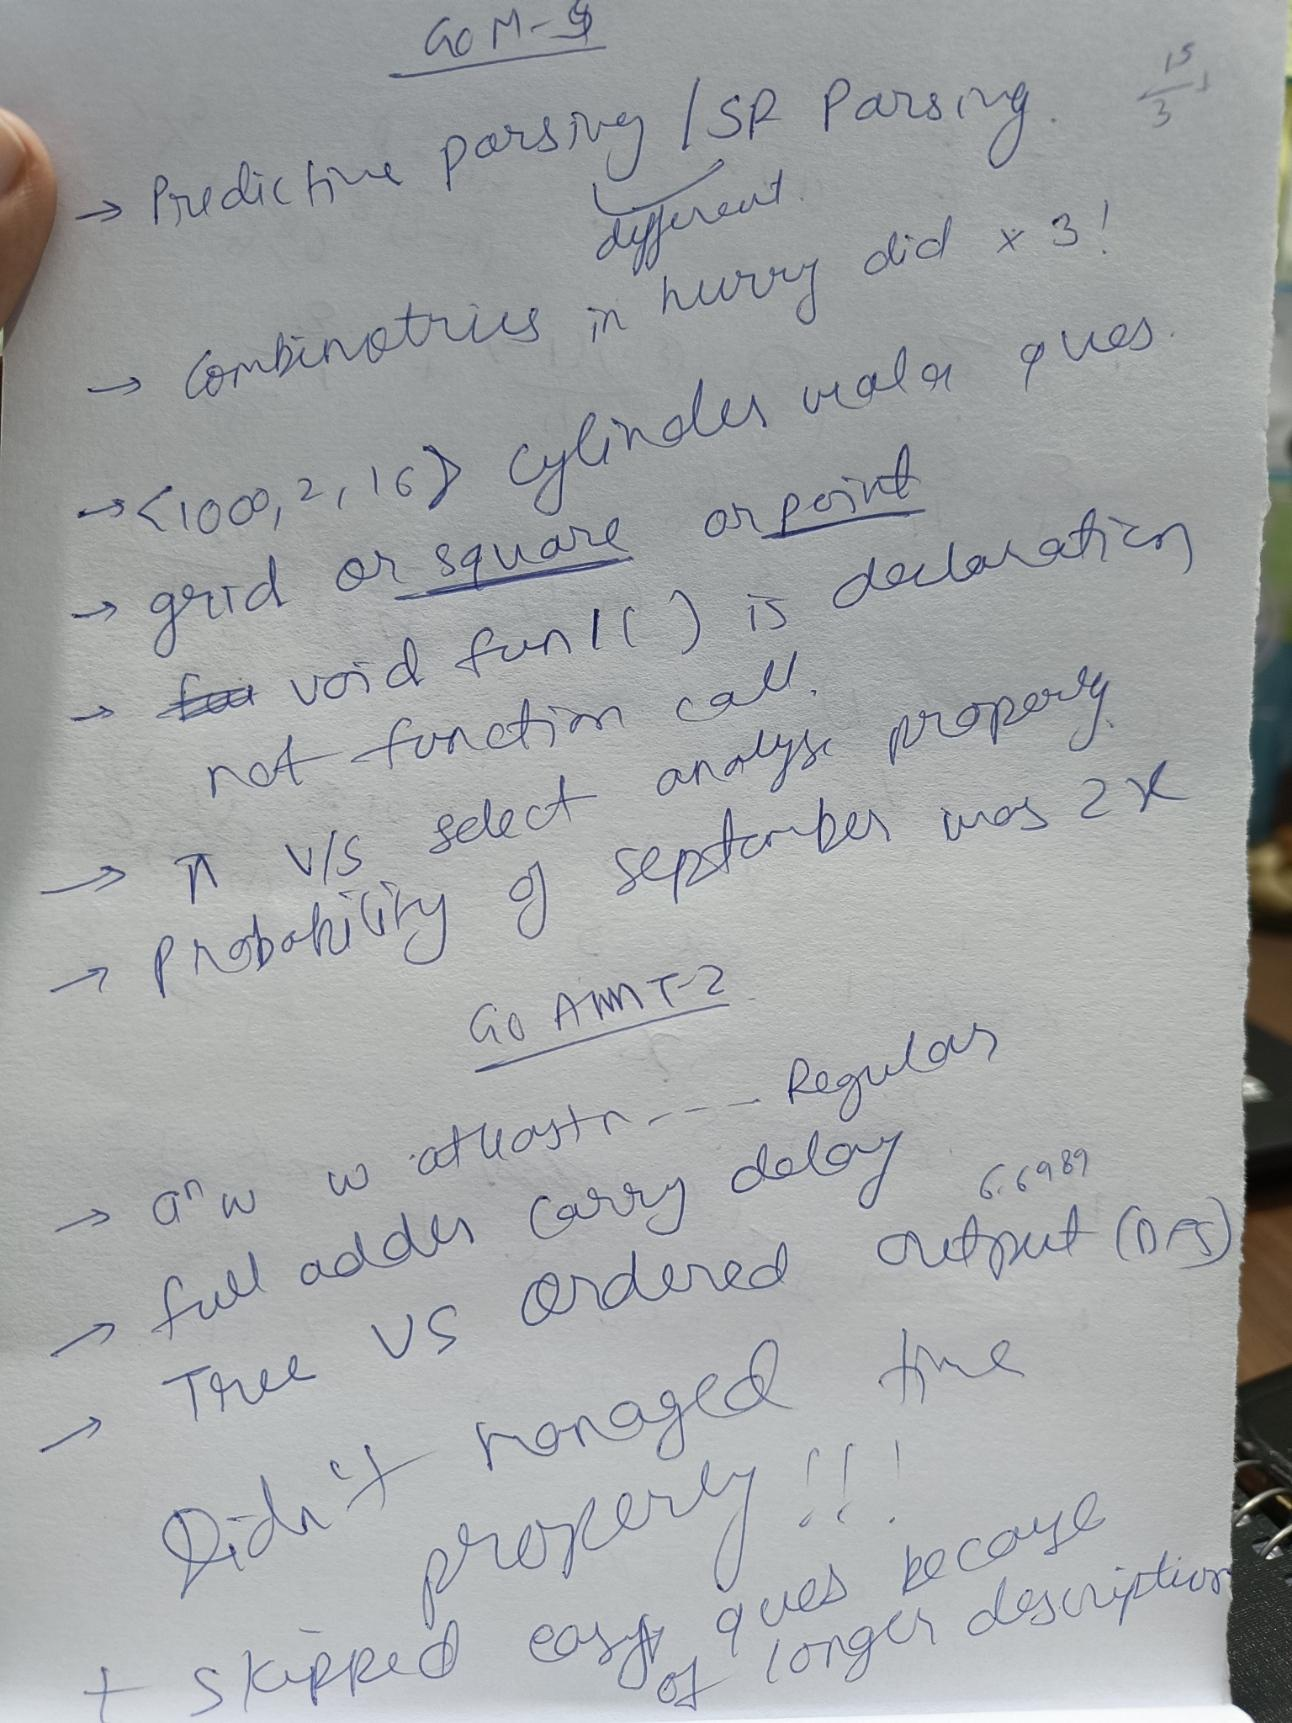 GO M-
15
3
→ Predictive parsing / SR Parsing.
different.
→ Combinotrics in hurry did x 3!
→ <1000, 2, 16> cylinder wala ques.
→ grid or square or point
→ void fun1( ) is declaration
not function call.
→ π v/s select analyse propery.
→ Probability of september was 2x
Go AIMT-2
→ aⁿw w atleast n --- Regular
→ full adder carry delay
6.6989
→ Tree VS Ordered output (DFS)
Didn't managed time
properly !!!
+ skipped easy ques because
of longer description